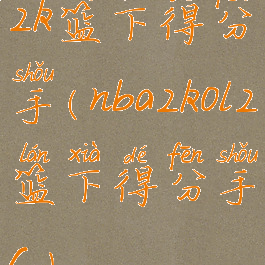 2k篮下得分
shǒu
手(nba2kol2
lán xià dé fēn shǒu
篮下得分手